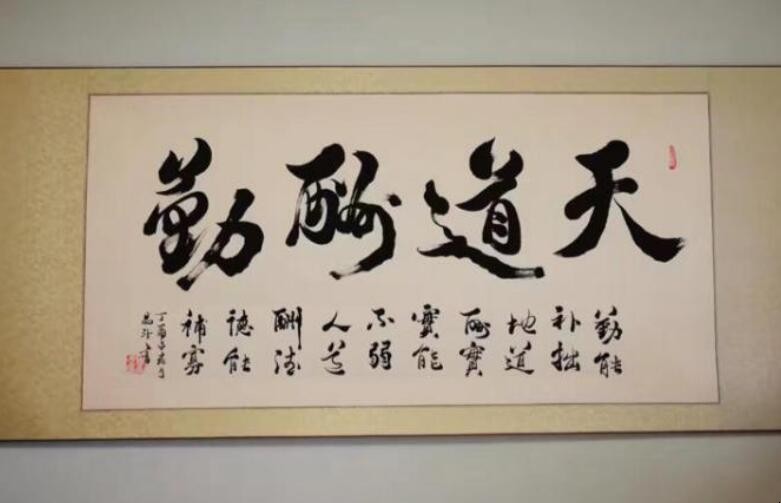 天道酬勤
勤能
补拙
地道
酬實
實能
不弱
人道
酬德
德能
補寡
丁酉年
書